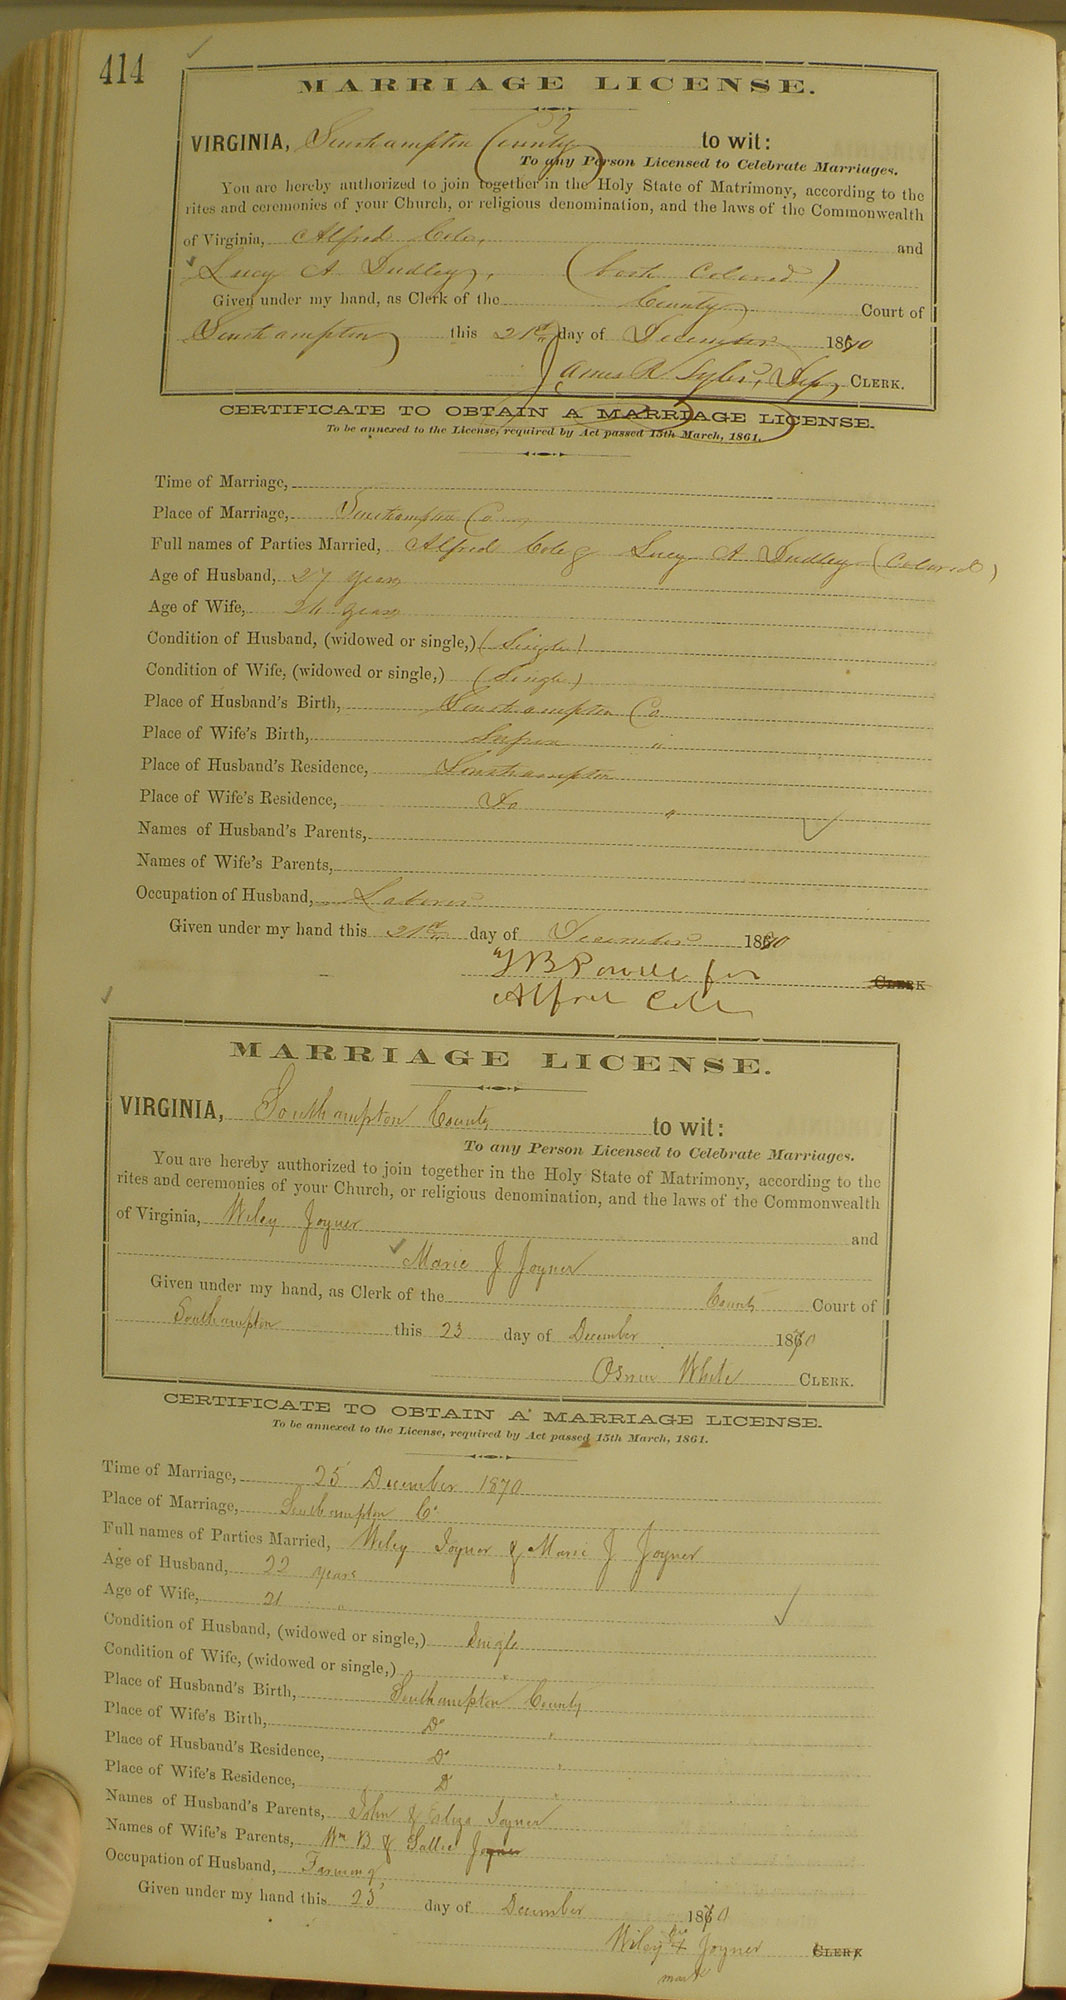 414
MARRIAGE LICENSE.
VIRGINIA, Southampton County to wit:
To any Person Licensed to Celebrate Marriages.
You are hereby authorized to join together in the Holy State of Matrimony, according to the
rites and ceremonies of your Church, or religious denomination, and the laws of the Commonwealth
of Virginia, Alfred Cole, and
Lucy A. Dudley, (both Colored)
Given under my hand, as Clerk of the County Court of
Southampton this 21st day of December 1870
James R Tyler, Dep, CLERK.
CERTIFICATE TO OBTAIN A MARRIAGE LICENSE.
To be annexed to the License, required by Act passed 15th March, 1861.
Time of Marriage,
Place of Marriage, Southampton Co
Full names of Parties Married, Alfred Cole & Lucy A Dudley (Colored)
Age of Husband, 27 years
Age of Wife, years
Condition of Husband, (widowed or single,) (Single)
Condition of Wife, (widowed or single,) (Single)
Place of Husband's Birth, Southampton Co
Place of Wife's Birth, "
Place of Husband's Residence, Southampton
Place of Wife's Residence, Do "
Names of Husband's Parents,
Names of Wife's Parents,
Occupation of Husband, Laborer
Given under my hand this 21st day of December 1870
Powell for CLERK
Alfred Cole
MARRIAGE LICENSE.
VIRGINIA, Southampton County to wit:
To any Person Licensed to Celebrate Marriages.
You are hereby authorized to join together in the Holy State of Matrimony, according to the
rites and ceremonies of your Church, or religious denomination, and the laws of the Commonwealth
of Virginia, Wiley Joyner and
Marie J Joyner
Given under my hand, as Clerk of the County Court of
Southampton this 23 day of December 1870
White CLERK.
CERTIFICATE TO OBTAIN A MARRIAGE LICENSE.
To be annexed to the License, required by Act passed 15th March, 1861.
Time of Marriage, 25 December 1870
Place of Marriage, Southampton Co
Full names of Parties Married, Wiley Joyner & Marie J Joyner
Age of Husband, 22 years
Age of Wife, 21 "
Condition of Husband, (widowed or single,) Single
Condition of Wife, (widowed or single,) "
Place of Husband's Birth, Southampton County
Place of Wife's Birth, Do "
Place of Husband's Residence, Do "
Place of Wife's Residence, D "
Names of Husband's Parents, John & Eliza Joyner
Names of Wife's Parents, Wm B & Sallie Joyner
Occupation of Husband, Farming
Given under my hand this 23 day of December 1870
Wiley his X Joyner CLERK
mark